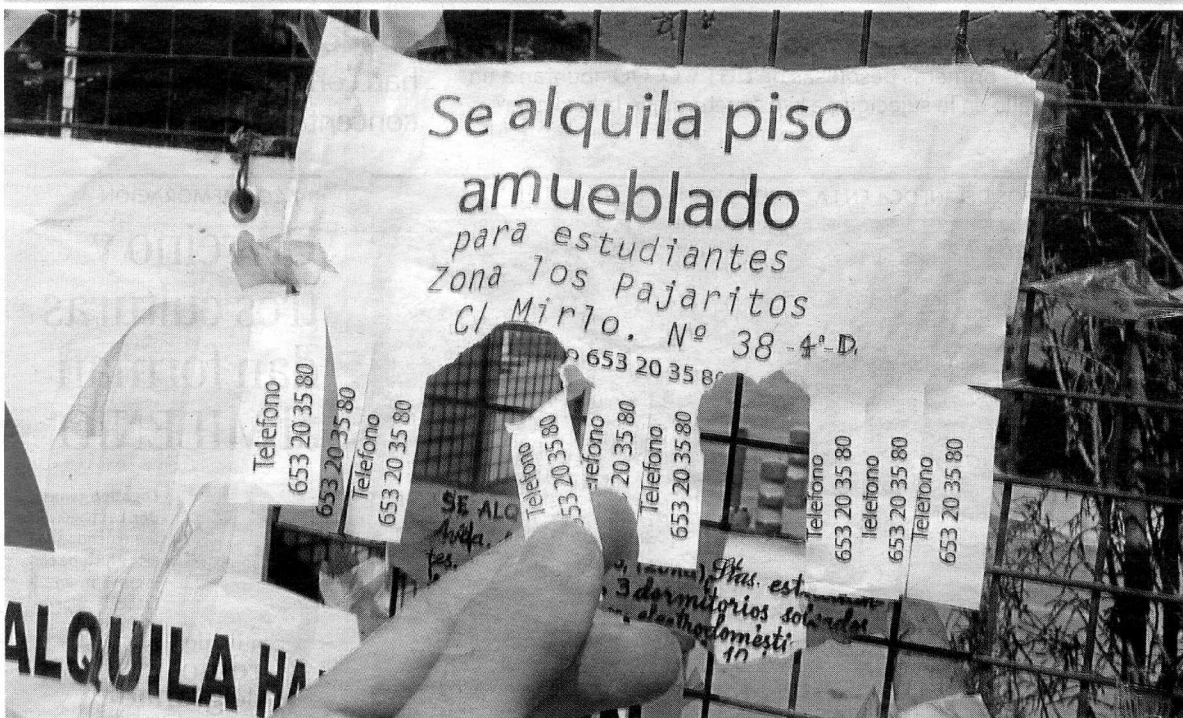 Se alquila piso
amueblado
para estudiantes
Zona los Pajaritos
C/ Mirlo. Nº 38-4º-D.
653 20 35 80
Telefono
653 20 35 80
653 20 35 80
Telefono
653 20 35 80
Telefono
653 20 35 80
20 35 80
Telefono
653 20 35 80
Telefono
653 20 35 80
Telefono
653 20 35 80
Telefono
653 20 35 80
SE ALQ
Avda.
tes.
Stas. est
3 dormitorios
electrodomésti
ALQUILA HA